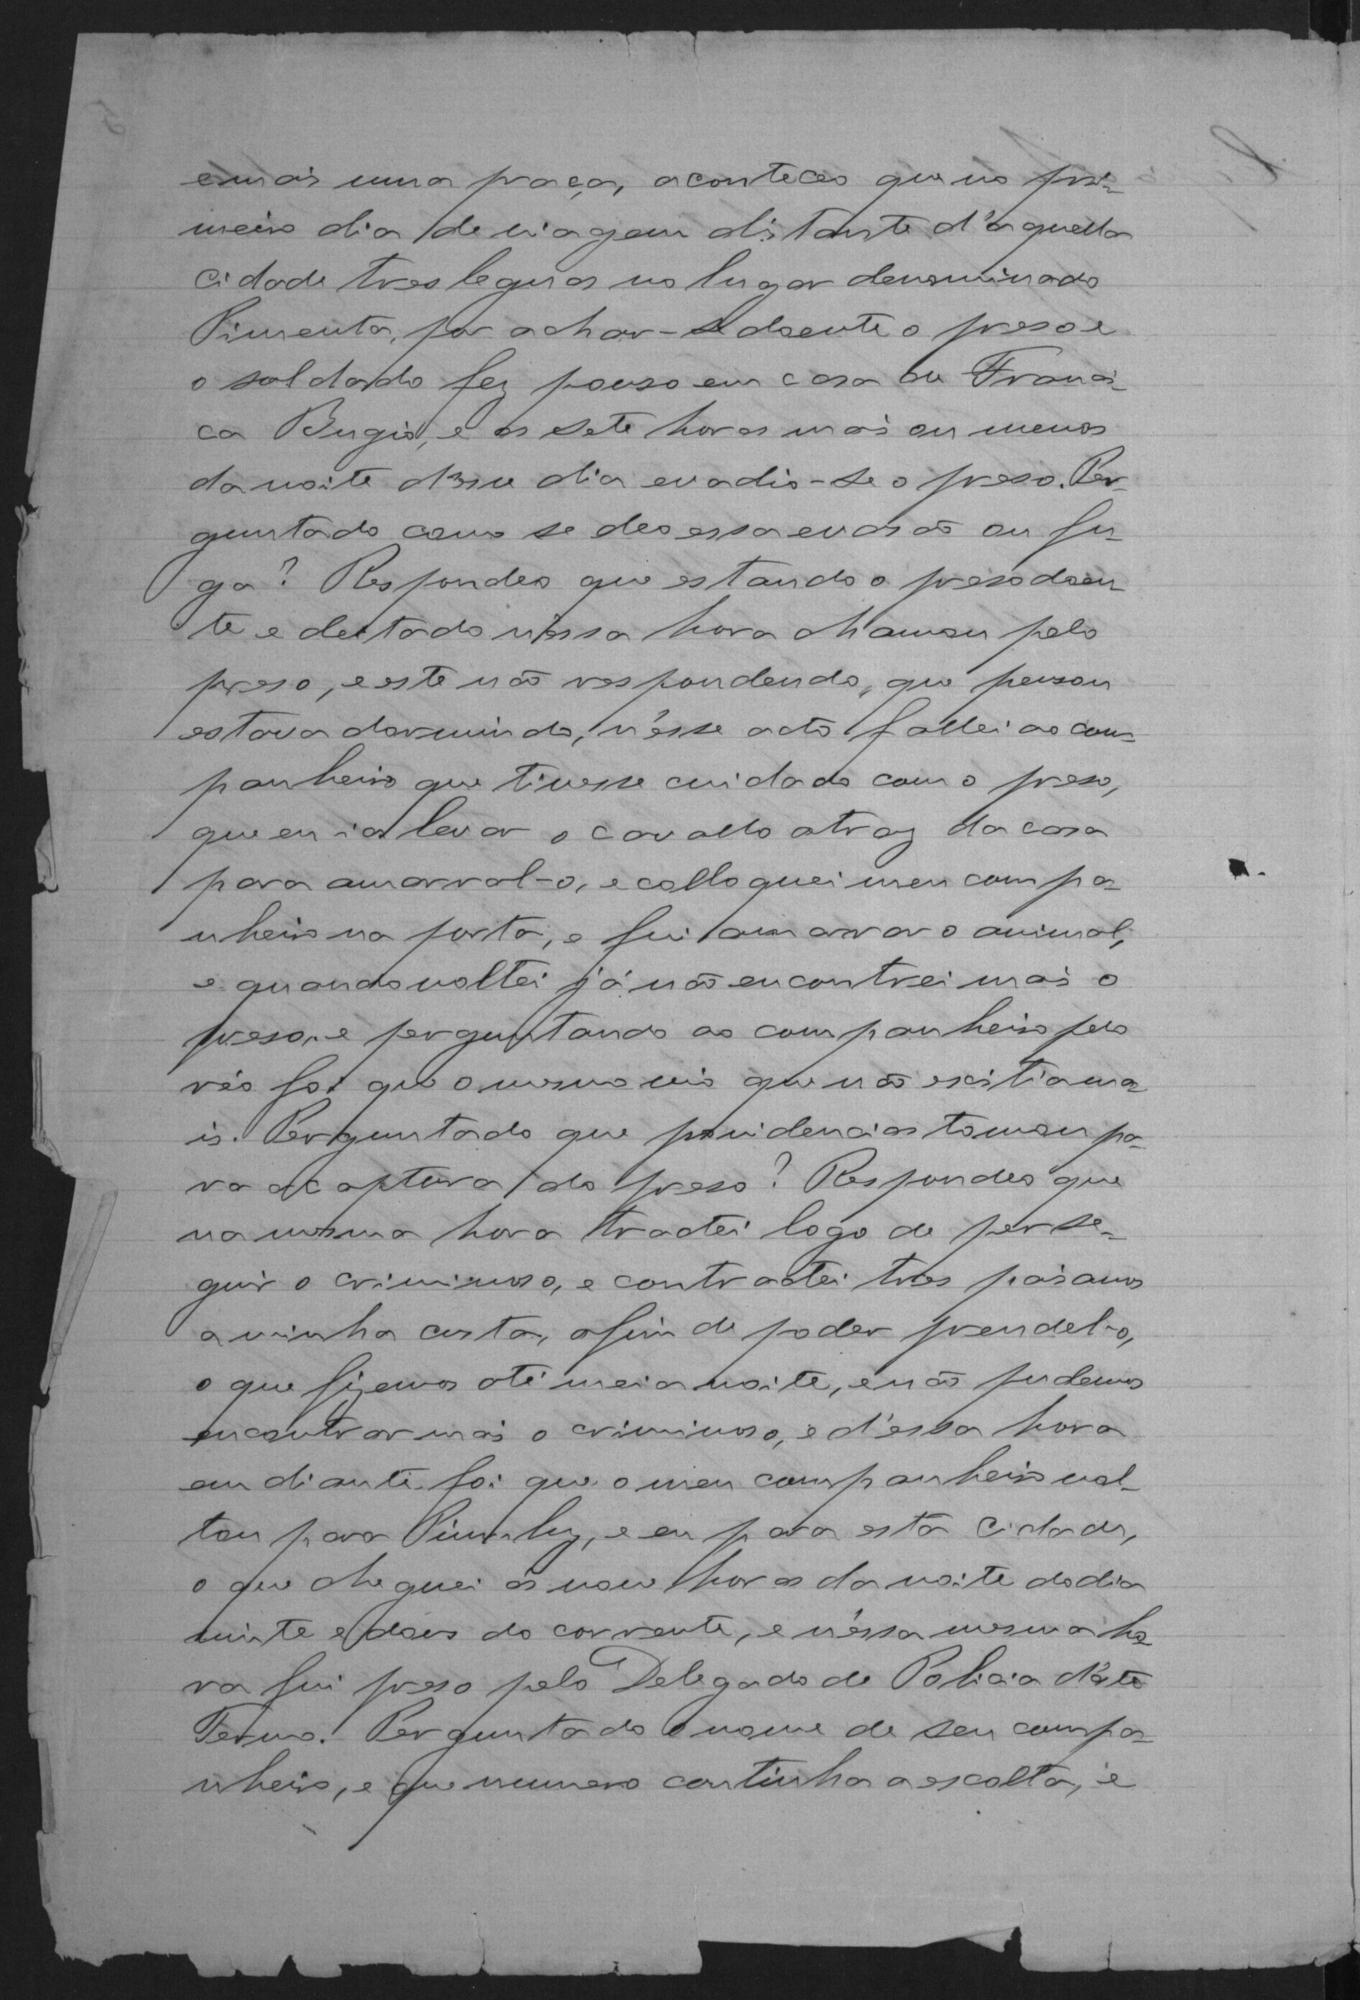 e mais uma praça, aconteceo que no pri-
meiro dia de viagem distante d'aquella
cidade tres leguas no lugar denominado
Pimenta, por achar-se doente o preso e
o soldado fez pouso em casa de Francis-
ca Bugio, e as sete horas mais ou menos
da noite d'esse dia evadio-se o preso. Per-
guntado como se deo essa evasão ou fu-
ga? Respondeo que estando o preso doen-
te e deitado nessa hora chamou pelo
preso, e este não respondendo, que pensou
estava dormindo, n'esse acto fallei ao com-
panheiro que tivesse cuidado com o preso,
que eu ia levar o cavallo atraz da casa
para amarral-o, e colloquei meu compa-
nheiro na porta, e fui amarrar o animal,
e quando voltei já não encontrei mais o
preso, e perguntando ao companheiro pelo
réo foi que o mesmo vio que não existia ma-
is. Perguntado que providencias tomou pa-
ra a captura do preso? Respondeo que
na mesma hora tractei logo de perse-
guir o criminoso, e contractei tres paisanos
a minha custa, afim de poder prendel-o,
o que fizemos até meia noite, e não pudemos
encontrar mais o criminoso, e d'essa hora
em diante foi que o meu companheiro vol-
tou para Piumhy, e eu para esta Cidade,
o que cheguei ás nove horas da noite do dia
vinte e dous do corrente, e n'essa mesma ho-
ra fui preso pelo Delegado de Policia d'este
Termo. Perguntado o nome de seu compa-
nheiro, e que numero continha a escolta, e